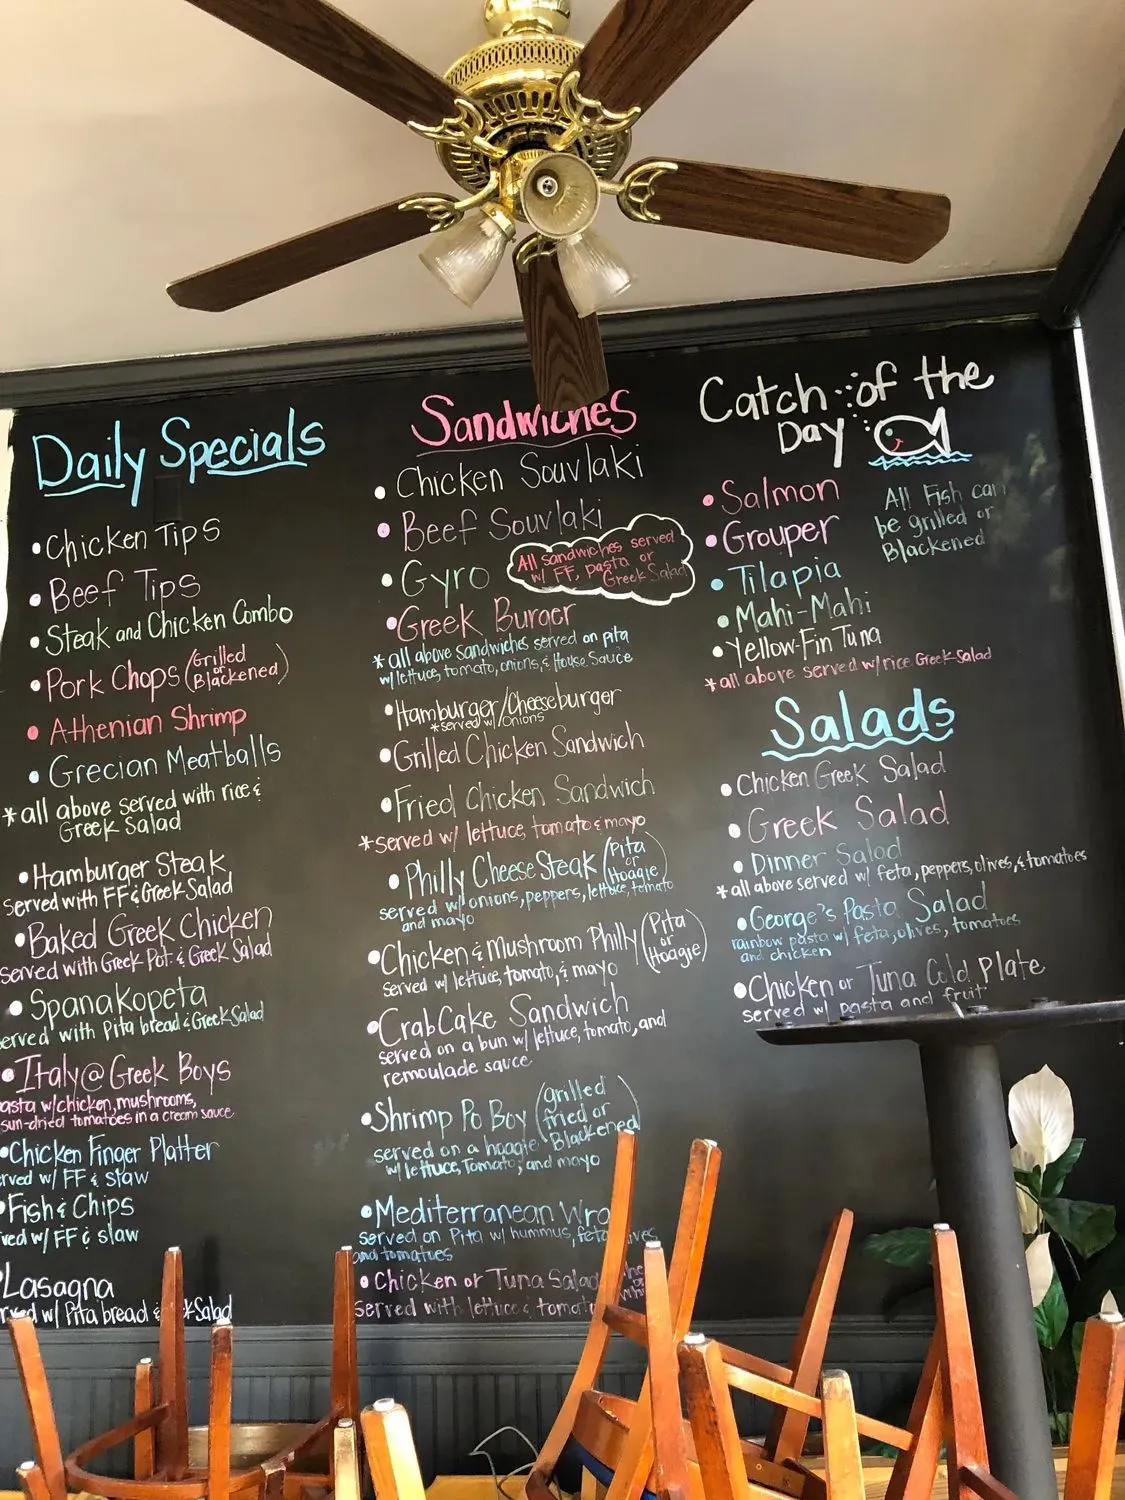 Daily Specials
•Chicken Tips
•Beef Tips
•Steak and Chicken Combo
•Pork Chops (Grilled or Blackened)
•Athenian Shrimp
•Grecian Meatballs
*all above served with rice &
Greek Salad
•Hamburger Steak
served with FF & Greek Salad
•Baked Greek Chicken
served with Greek Pot. & Greek Salad
•Spanakopeta
served with Pita bread & Greek Salad
•Italy @ Greek Boys
asta w/chicken, mushrooms,
sun-dried tomatoes in a cream sauce
•Chicken Finger Platter
rved w/ FF & slaw
•Fish & Chips
ved w/ FF & slaw
Lasagna
rved w/ Pita bread & Salad
Sandwiches
•Chicken Souvlaki
•Beef Souvlaki
•Gyro
All sandwiches served
w/ FF, pasta or
Greek Salad
•Greek Burger
*all above sandwiches served on pita
w/ lettuce, tomato, onions, & House Sauce
•Hamburger/Cheeseburger
*served w/ onions
•Grilled Chicken Sandwich
•Fried Chicken Sandwich
*served w/ lettuce, tomato & mayo
•Philly Cheese Steak (Pita or Hoagie)
served w/ onions, peppers, lettuce, tomato
and mayo
•Chicken & Mushroom Philly (Pita or Hoagie)
served w/ lettuce, tomato, & mayo
•Crab Cake Sandwich
served on a bun w/ lettuce, tomato, and
remoulade sauce
•Shrimp Po Boy (grilled fried or Blackened)
served on a hoagie
w/ lettuce, Tomato, and mayo
•Mediterranean Wra
served on Pita w/ hummus, feta, ives,
and tomatoes
•Chicken or Tuna Salad
served with lettuce & tomato
Catch of the
Day
•Salmon
•Grouper
•Tilapia
•Mahi-Mahi
•Yellow-Fin Tuna
*all above served w/ rice Greek Salad
All Fish can
be grilled or
Blackened
Salads
•Chicken Greek Salad
•Greek Salad
•Dinner Salad
*all above served w/ feta, peppers, olives, & tomatoes
•George's Pasta Salad
rainbow pasta w/ feta, olives, tomatoes
and chicken
•Chicken or Tuna Cold Plate
served w/ pasta and fruit